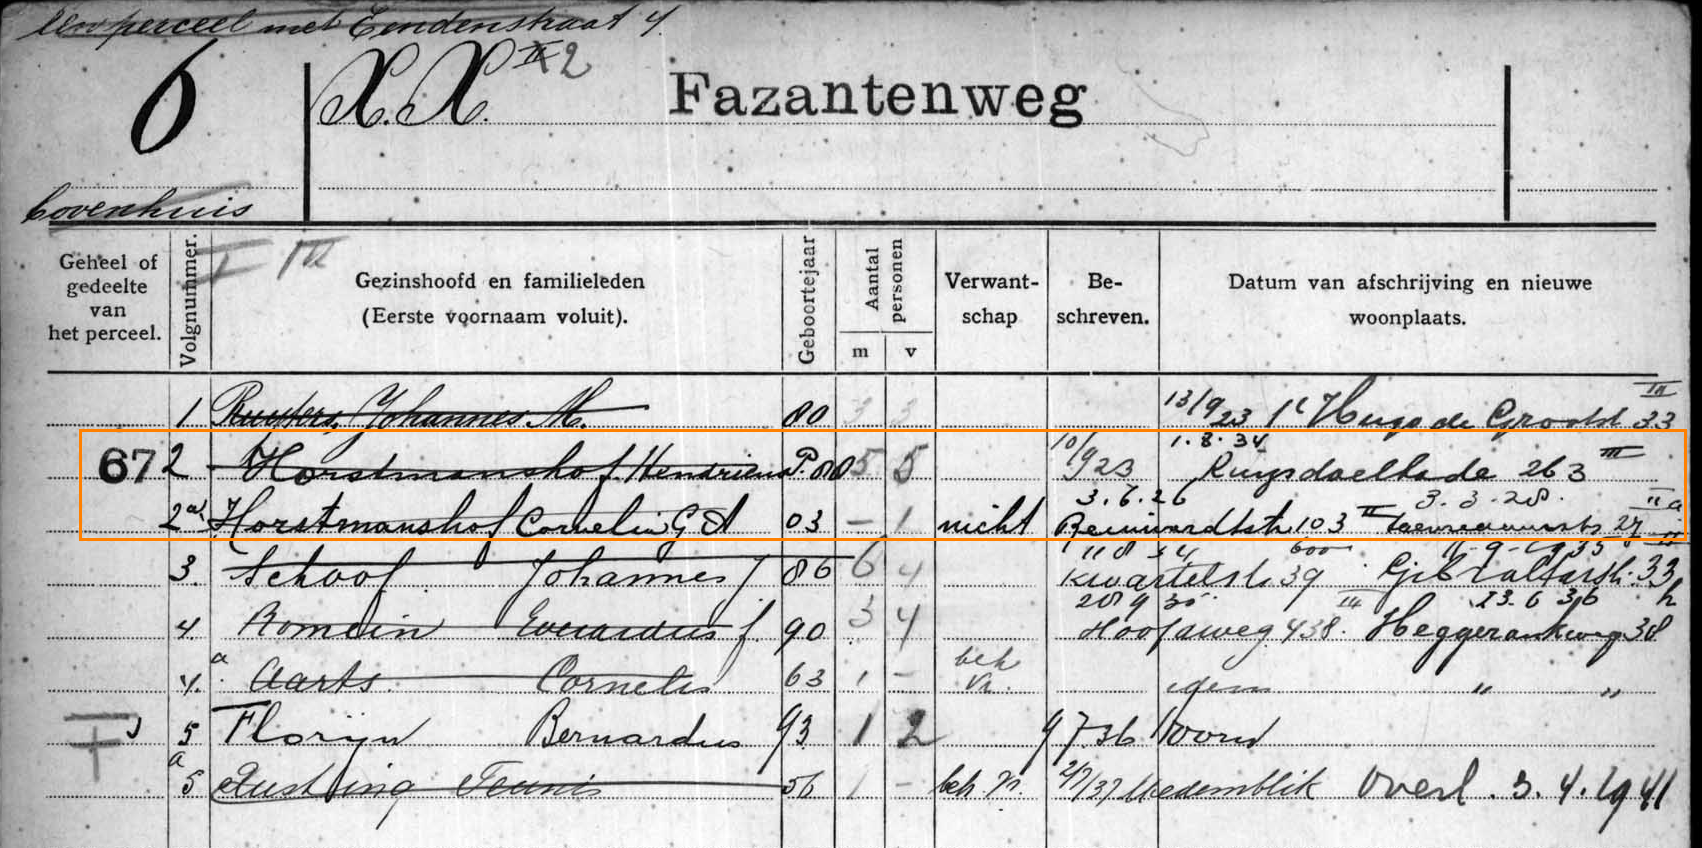 perceel met Eendenstraat 4
6 X.X. II 2 Fazantenweg
bovenhuis
I III
Geheel of gedeelte van het perceel.
Volgnummer.
Gezinshoofd en familieleden
(Eerste voornaam voluit).
Geboortejaar
Aantal personen
m v
Verwant-
schap
Be-
schreven.
Datum van afschrijving en nieuwe
woonplaats.
1 Ruyters, Johannes M. 80 3 3 13/9 23 Hugo de Grootst. 33 III
67 2 Horstmanshof, Hendricus P. 80 5 5 10/9 23 1.8.34 Ruysdaelkade 263 III
2a Horstmanshof Cornelia G A 03 - 1 nicht 3.6.26 Reinwardtstr. 103 II 3.3.28. 27 II a
3. Schoof Johannes J 86 6 4 11 8 34 Kwartelstr. 39 11-9-1935 Gibraltarstr. 33 II
4 Romein Everardus J. 90 3 4 20 9 35 Hoofdweg 438 III 23.6 36 Heggerankweg 38 h
4.a Aarts Cornelis 63 1 - beh. idem " "
5 Florijn Bernardus 93 1 2 9 7.36 Noord
5a Teunis 56 1 - beh. 2/7/37 Medemblik Overl. 3.4.1941